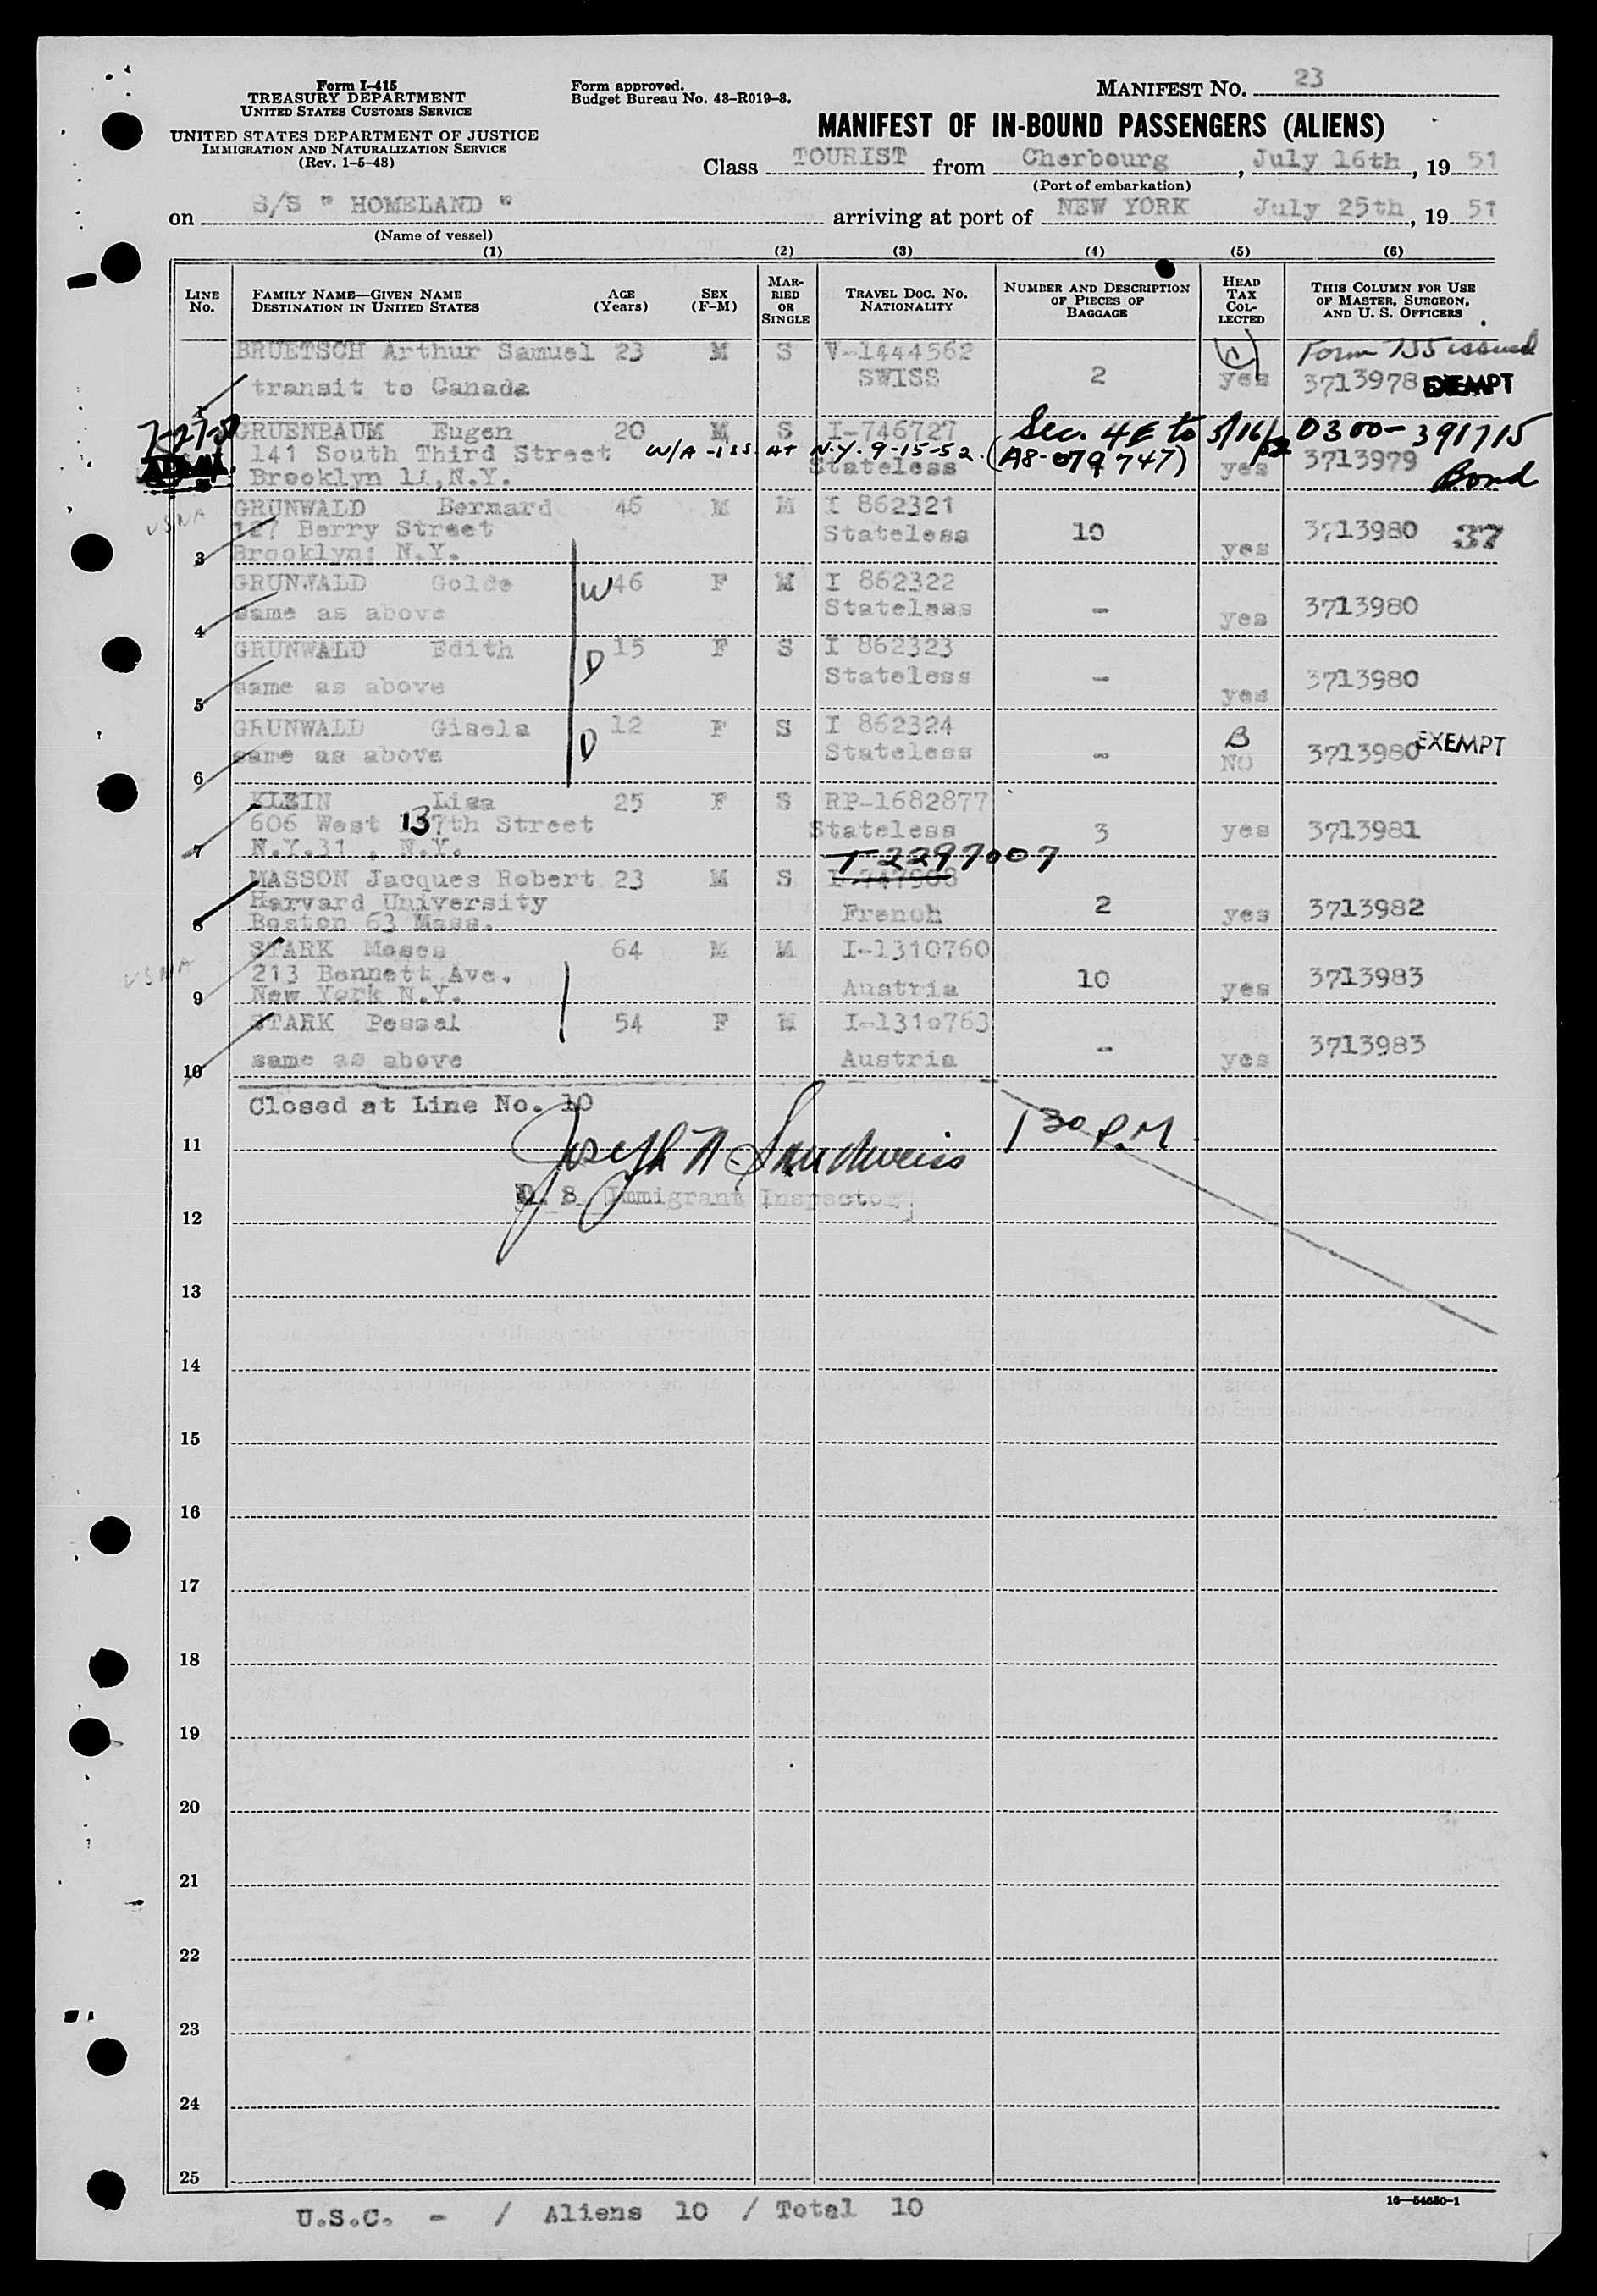 Form I-415
TREASURY DEPARTMENT
UNITED STATES CUSTOMS SERVICE
UNITED STATES DEPARTMENT OF JUSTICE
IMMIGRATION AND NATURALIZATION SERVICE
(Rev. 1-5-48)
Form approved.
Budget Bureau No. 43-R019-3.
MANIFEST NO. 23
MANIFEST OF IN-BOUND PASSENGERS (ALIENS)
Class TOURIST from Cherbourg, July 16th, 19 51
(Port of embarkation)
on S/S " HOMELAND " arriving at port of NEW YORK July 25th, 19 51
(Name of vessel)
(1) (2) (3) (4) (5) (6)
LINE NO.
FAMILY NAME—GIVEN NAME
DESTINATION IN UNITED STATES
AGE (Years)
SEX (F-M)
MARRIED OR SINGLE
TRAVEL DOC. NO. NATIONALITY
NUMBER AND DESCRIPTION OF PIECES OF BAGGAGE
HEAD TAX COLLECTED
THIS COLUMN FOR USE OF MASTER, SURGEON, AND U. S. OFFICERS
BRUETSCH Arthur Samuel 23 M S V-1444562 Form 755 issued
transit to Canada SWISS 2 yes 3713978 EXEMPT
1
7-27-51 GRUENBAUM Eugen 20 M S I-746727 Sec. 4E to 5/16/52 0300-391715
141 South Third Street W/A-iss. AT N.Y. 9-15-52. (A8-079 747) Stateless yes 3713979
Brooklyn 11,N.Y. Bond
USNA GRUNWALD Bernard 46 M M I 862321
127 Berry Street Stateless 10 3713980 37
3 Brooklyn: N.Y. yes
GRUNWALD Golde W 46 F M I 862322
same as above Stateless - yes 3713980
4
GRUNWALD Edith D 15 F S I 862323
same as above Stateless - yes 3713980
5
GRUNWALD Gisela D 12 F S I 862324 B
same as above Stateless - NO 3713980 EXEMPT
6
KLEIN Lisa 25 F S RP-1682877
606 West 137th Street Stateless 3 yes 3713981
7 N.Y.31 , N.Y.
T-2297007
MASSON Jacques Robert 23 M S
Harvard University French 2 yes 3713982
8 Boston 63 Mass.
STARK Moses 64 M M I-1310760
USNA 213 Bennett Ave. Austria 10 yes 3713983
9 New York N.Y.
STARK Pessel 54 F M I-1310763
same as above Austria - yes 3713983
10
Closed at Line No. 10
11 Joseph N. Sandweiss 1 30 P.M.
U. S. Immigrant Inspector
12
13
14
15
16
17
18
19
20
21
22
23
24
25
16—54650-1
U.S.C. - / Aliens 10 / Total 10